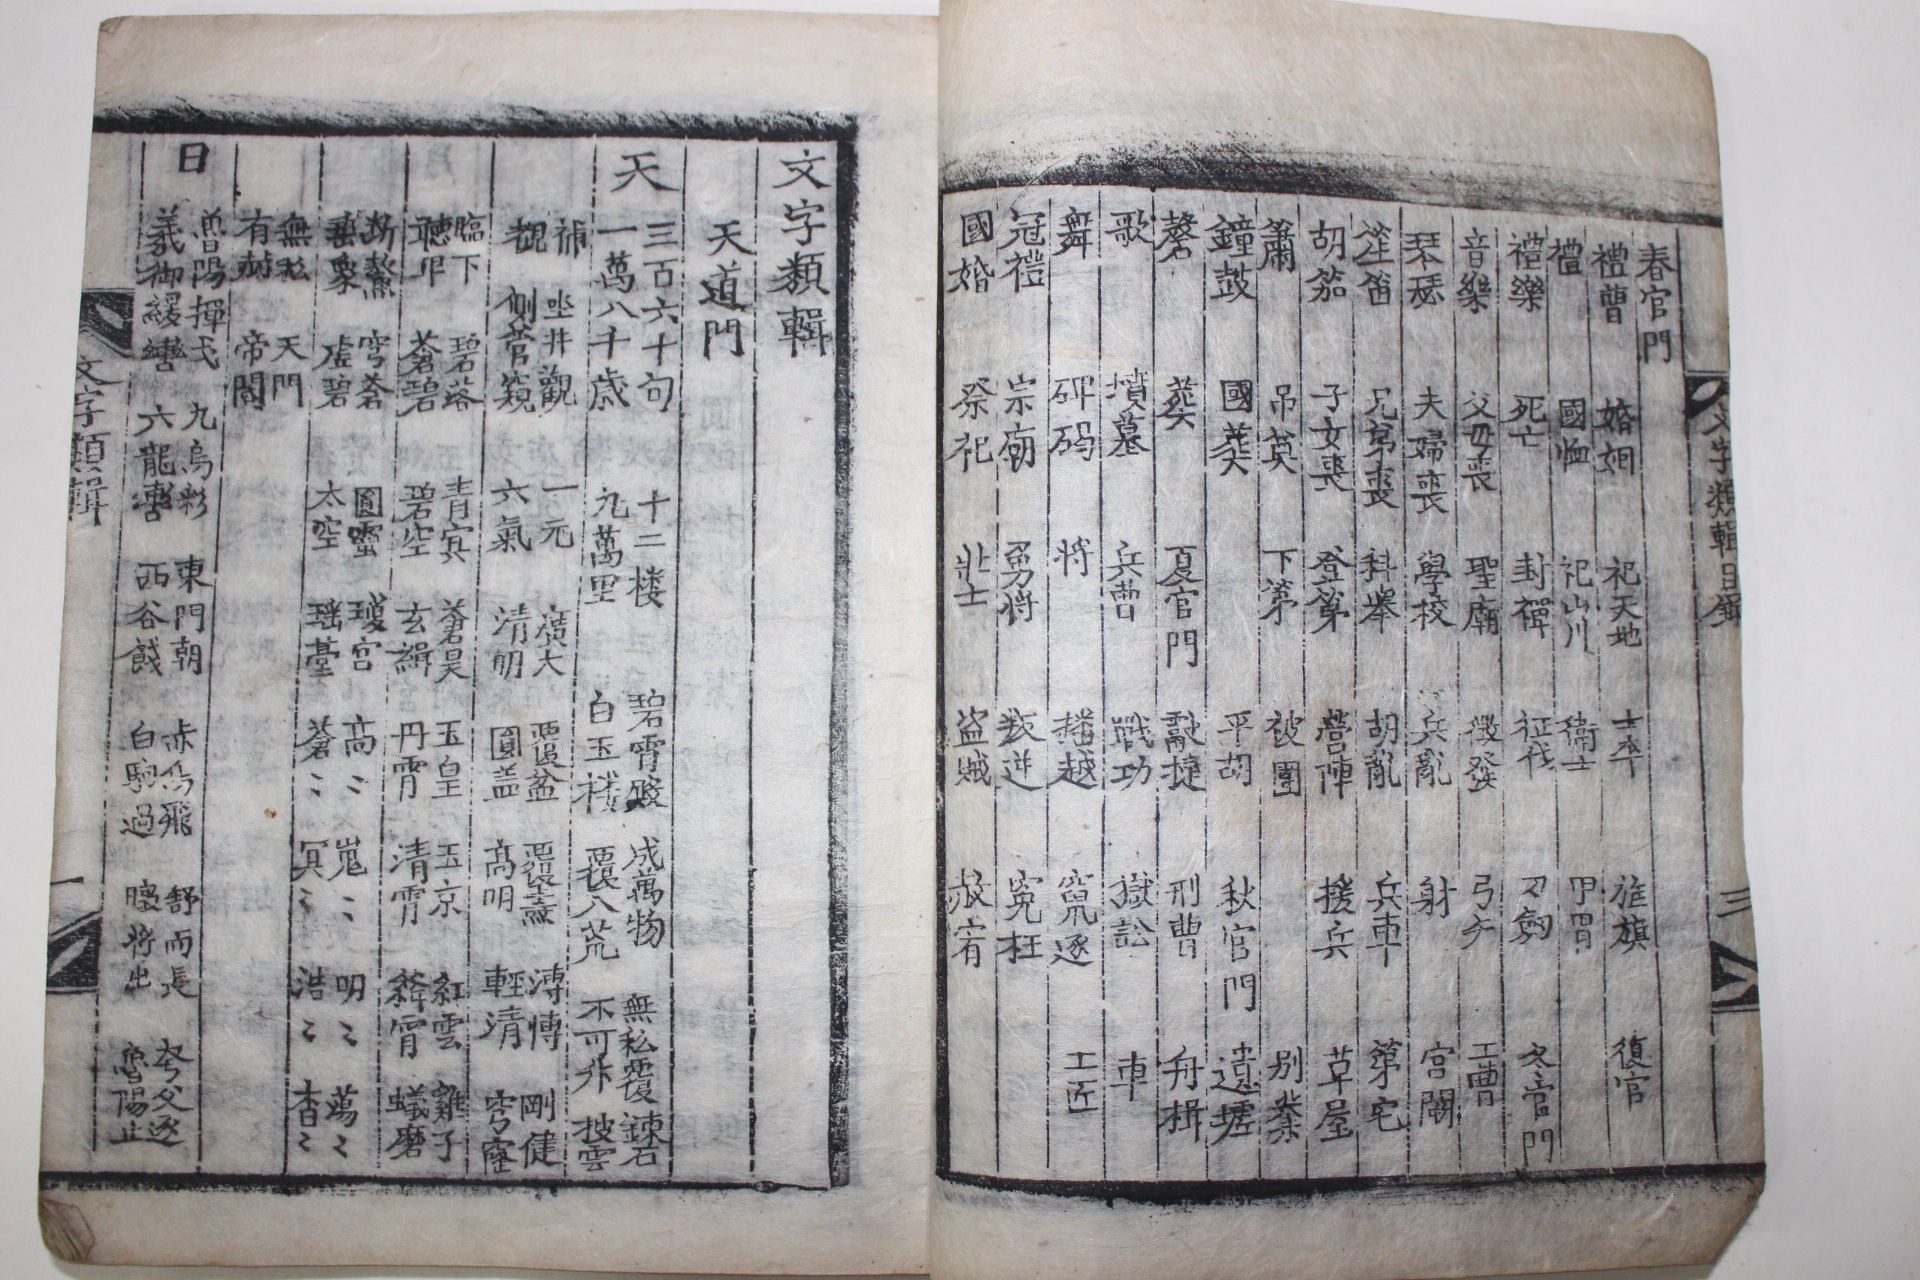 春官門
禮曹 婚姻 祀天地 士卒 旌旗 復官
禮 國恤 祀山川 衛士 甲冑
禮樂 死亡 封禪 征伐 刀劒 冬官門
音樂 父母喪 聖廟 徵發 弓矢 工曹
琴瑟 夫婦喪 學校 兵亂 射 宮闕
笙笛 兄弟喪 科擧 胡亂 兵車 第宅
胡笳 子女喪 登第 營陣 援兵 草屋
簫 吊 下第 被圍 別業
鐘鼓 國葬 平胡 秋官門 遺墟
磬 葬 夏官門 獻捷 刑曹 舟楫
歌 墳墓 兵曹 戰功 獄訟 車
舞 碑碣 將 播越 竄逐 工匠
冠禮 宗廟 勇將 叛逆 寃枉
國婚 祭祀 壯士 盜賊 赦宥
文字類輯目錄
三
文字類輯
天道門
天
三百六十句 十二楼 碧霄殿 成萬物 無私覆 鍊石
一萬八千歲 九萬里 白玉楼 覆八荒 不可升 披雲
補 坐井觀 一元 廣大 覆盆 覆燾 溥博 剛健
覩 側管窺 六氣 清明 圓盖 高明 輕清 穹窿
臨下 碧落 青冥 蒼昊 玉皇 玉京 紅雲 雞子
聽卑 蒼碧 碧空 玄緯 丹霄 清霄 絳霄 蟻磨
斷鰲 穹蒼 圓靈 瓊宮 高〻 嵬〻 明〻 蕩〻
垂象 虛碧 太空 瑶臺 蒼〻 冥〻 浩〻 杳〻
無私 天門
有 帝閽
日
魯陽揮戈 九烏彩 東門朝 赤烏飛 舒而長 夸父逐
羲御緩轡 六龍轡 西谷餞 白駒過 將出 魯陽止
文字類輯
一